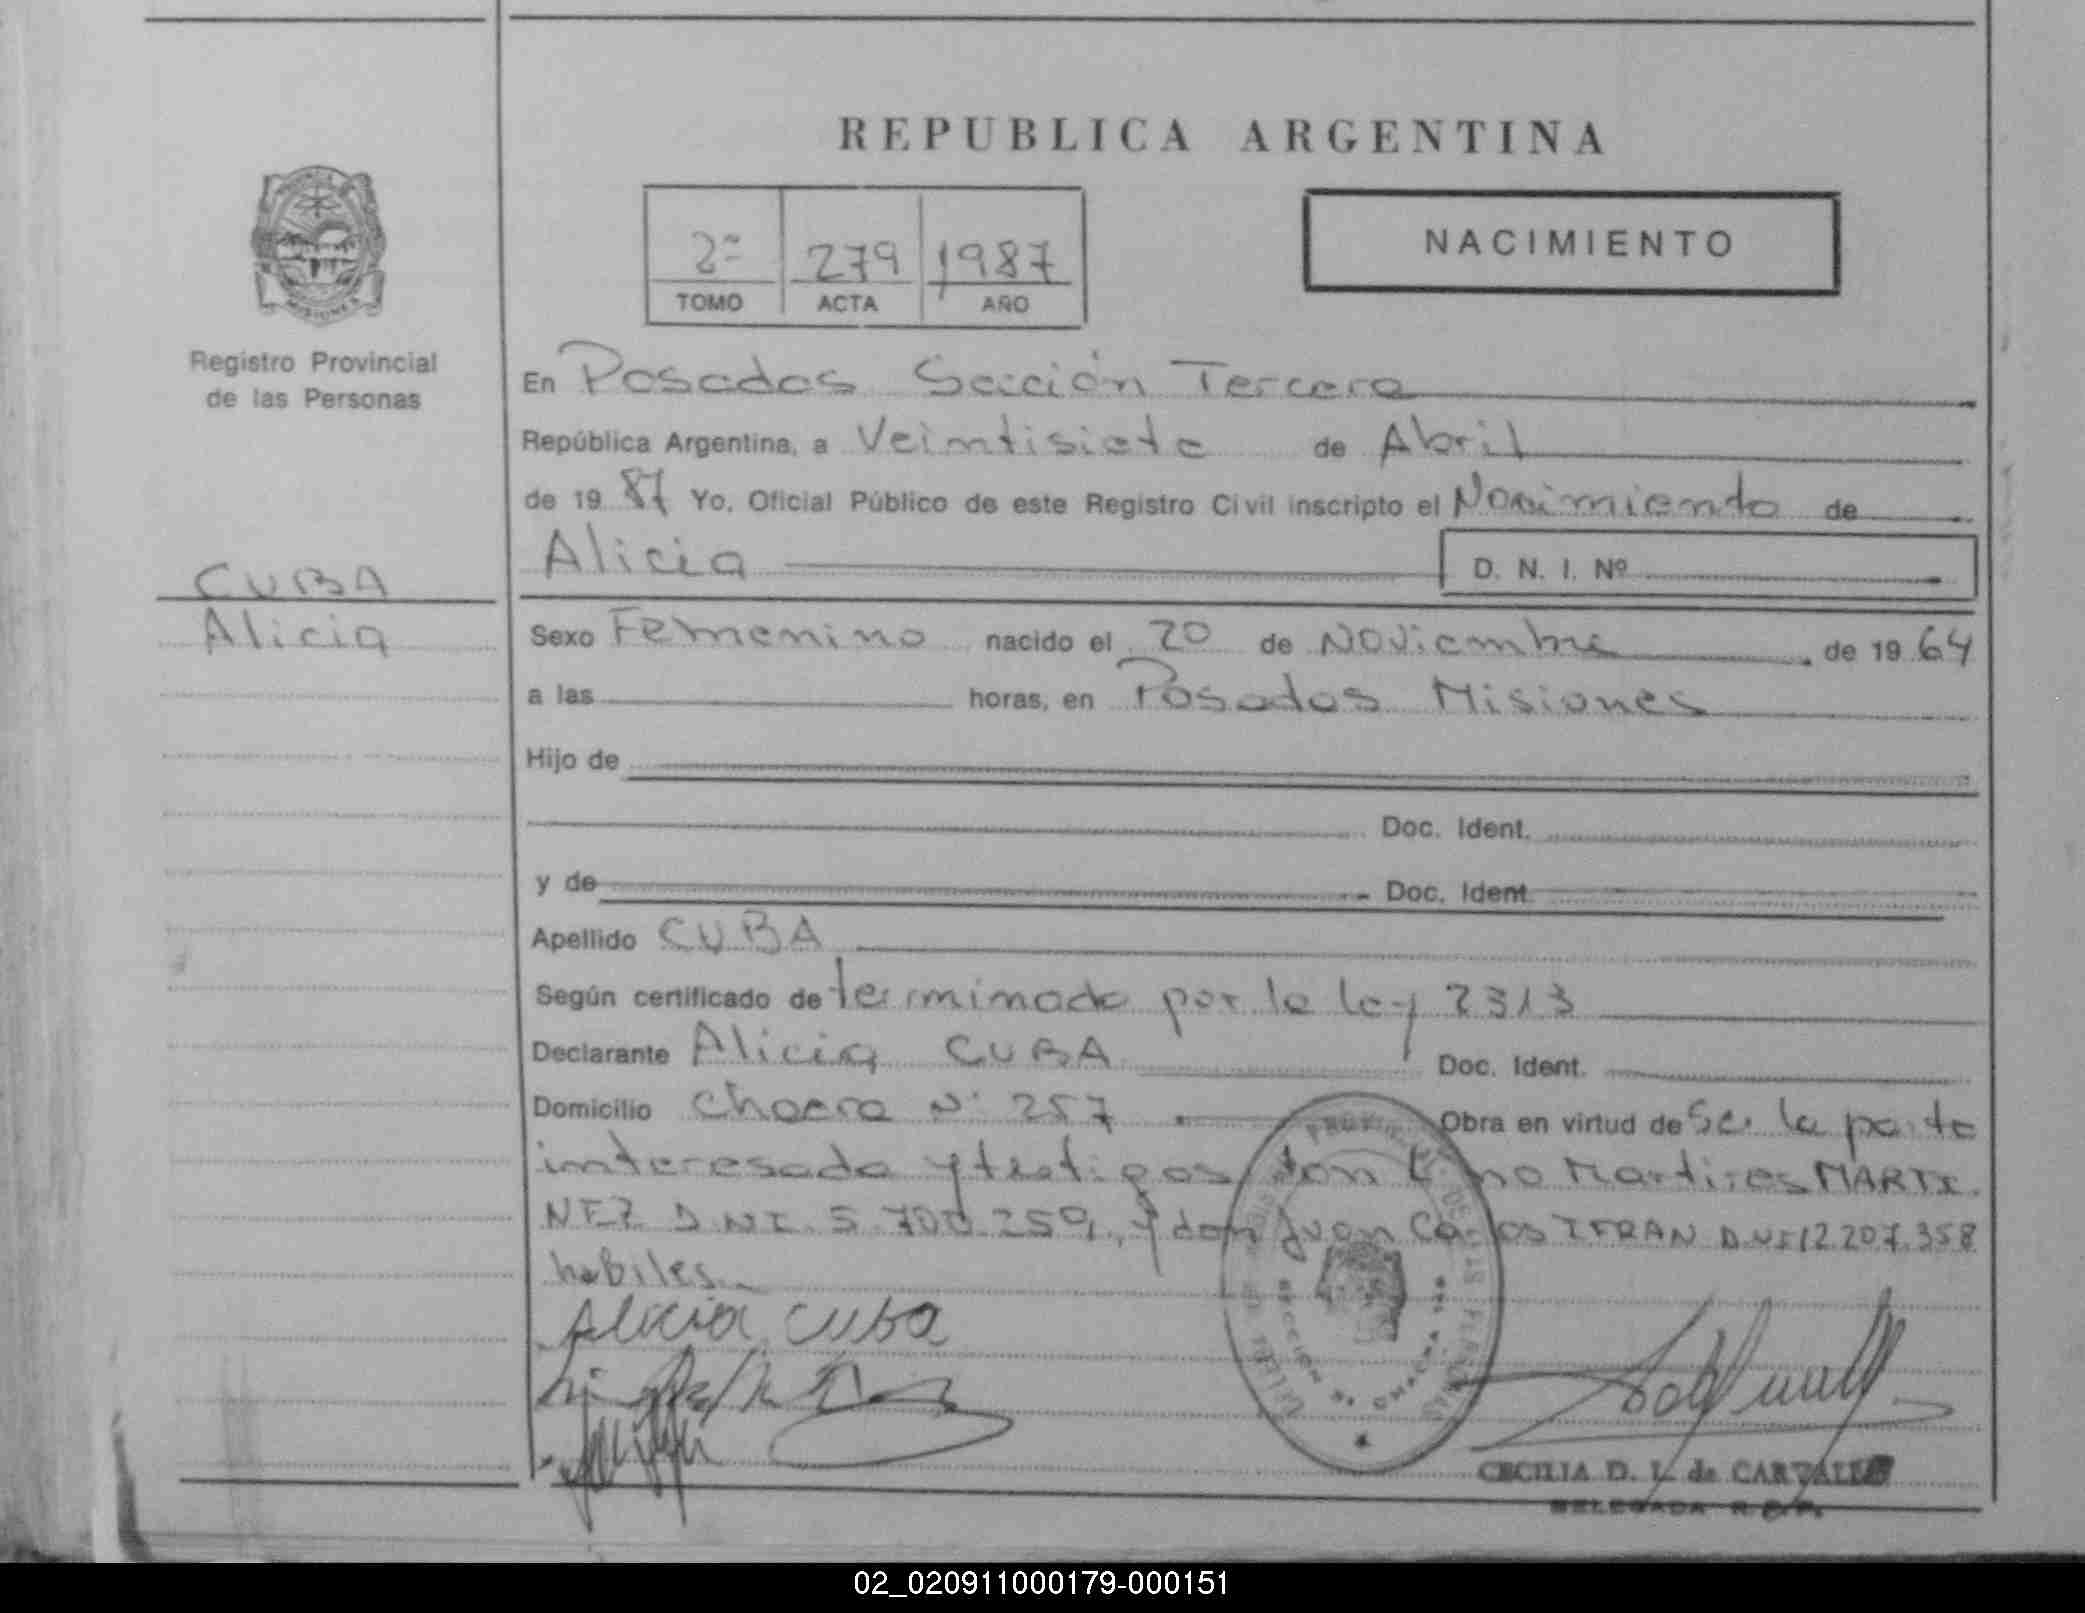 REPUBLICA ARGENTINA
2º 279 1987
TOMO ACTA AÑO
NACIMIENTO
MISIONES
Registro Provincial
de las Personas
CUBA
Alicia
En Posadas Sección Tercera
República Argentina, a Veintisiete de Abril
de 19 87 Yo, Oficial Público de este Registro Civil inscripto el Nacimiento de
Alicia
D. N. I. Nº
Sexo Femenino nacido el 20 de Noviembre de 19 64
a las horas, en Posadas Misiones
Hijo de
Doc. Ident.
y de Doc. Ident.
Apellido CUBA
Según certificado de terminado por la ley 2313
Declarante Alicia CUBA Doc. Ident.
Domicilio Chacra Nº 257 Obra en virtud de Ser la parte
interesada y testigos don Martires MARTI
NEZ D.N.I. 5.700.259, y don Juan Carlos IFRAN DNI 12.207.358
habiles.
Alicia Cuba
SECCION CHACRA
CECILIA D. L. de CARVALLO
DELEGADA R.C.P.
02_020911000179-000151